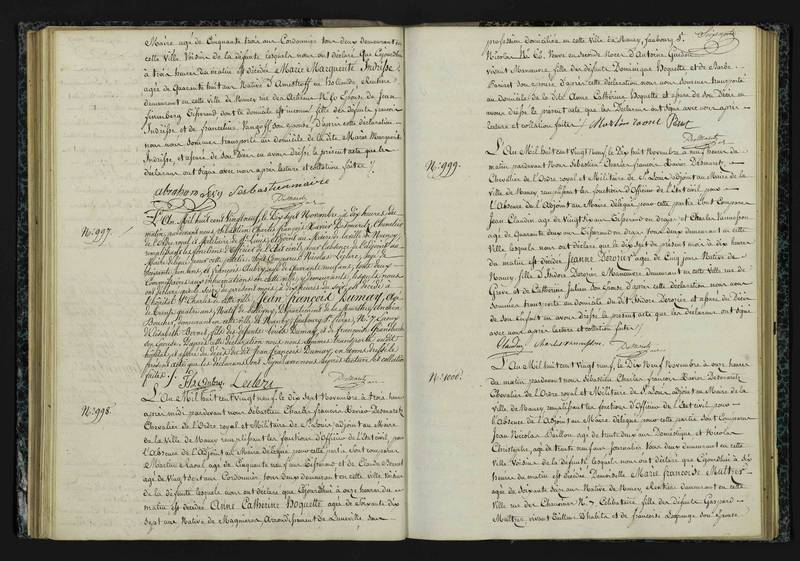 Maire agé de Cinquante trois ans Cordonnier tous deux demeurant en
cette Ville Voisins de la défunte lesquels nous ont déclaré que Cejourdhui
à trois heures du matin est décédée Marie Marguerite Indisse
agée de Quarante huit ans Native D'Amesloff en Hollande, Rentière
demeurant en cette ville de Nancy rue des Artisans No 6 Epouse de Jean
Tisserand dont le domicile est inconnu fille des défunts françois
Indisse et de francelina son épouse D'après cette déclaration
nous nous sommes transporté au domicile de la dite Marie Marguerite
Indisse, et assuré de son Décès en avons dressé le présent acte que les
déclarans ont signé avec nous après lecture et collation faites /.
abraham Levy Sebastien maire
No 997.
L'An Mil huit cent Vingt neuf, le Dix Sept Novembre à dix heures du
matin, pardevant nous Sébastien Charles françois Xavier Desmaretz, Chevalier
de l'Ordre royal et Militaire de St Louis, adjoint au Maire de la ville de Nancy,
remplissant les fonctions d'Officier de l'Etat civil, pour l'absence de l'Adjoint au
Maire délégué pour cette partie, sont Comparus Nicolas Leclerc, agé de
Soixante ans, et françois Aubry, agé de quarante neuf ans, tous deux
Commissaires aux inhumations en cette ville y demeurants, lesquels nous
ont déclaré que le seize du présent mois à dix heures du soir est décédé à
l'hôpital St Charles de cette ville Jean François Dumay, agé
de Département de la Meurthe,
Boucher, demeurant en cette ville de Nancy faubourg St Pierre, No 7, Epoux
d'Elisabeth Bernet, fils des défunts Dumay, et de françoise
son épouse, D'après cette déclaration nous nous sommes transporté audit
hôpital, et assuré du décès du dit Jean François Dumay, en avons dressé le
présent acte que les Déclarans ont signé avec nous après lecture et collation
faites /.
Fs Aubry Leclerc
No 998.
L'An Mil huit cent Vingt neuf, le Dix sept Novembre à trois heures
après midi pardevant nous Sébastien Charles françois Xavier Desmaretz
Chevalier de l'Ordre royal et Militaire de St Louis adjoint au Maire
de la Ville de Nancy remplissant les fonctions d'Officier de l'Etat civil, pour
l'Absence de l'Adjoint au Maire délégué pour cette partie sont comparus
Martin Raoul agé de Cinquante neuf ans Tisserand et Claude Bernet
agé de Vingt sept ans Cordonnier, tous deux demeurant en cette ville Voisins
de la défunte lesquels nous ont déclaré que Cejourdhui à onze heures du
matin est décédée Anne Catherine Hoquette agée de Soixante dix
sept ans Native de Magnières Arrondissement de Luneville, sans
profession domiciliée en cette Ville de Nancy, faubourg St
Nicolas No 66 Veuve en seconde Noces d'Antoine
vivant Manœuvre, fille des défunts Dominique Hoquette et de Barbe
son épouse, d'après cette déclaration nous nous sommes transporté
au domicile de la dite Anne Catherine Hoquette et assuré de son Décès en
avons dressé le présent acte que les Déclarans ont signé avec nous après
lecture et collation faites /. Martin raoul
No 999.
L'An Mil huit cent Vingt neuf, le Dix huit Novembre à neuf heures du
matin pardevant nous Sébastien Charles françois Xavier Desmaretz
Chevalier de l'Ordre royal et Militaire de St Louis adjoint au Maire de la
Ville de Nancy remplissant les fonctions d'Officier de l'Etat civil pour
l'Absence de l'Adjoint au Maire délégué pour cette partie Sont Comparus
Jean Claudin agé de Vingt six ans Tisserand en draps et Charles Vannesson
agé de Quarante deux ans Tisserand en draps tous deux demeurant en cette
Ville lesquels nous ont déclaré que le dix sept du présent mois à dix heures
du matin est décédée Jeanne Derozier agée de Cinq jours Native de
Nancy, fille d'Isidore Derozier Manœuvre demeurant en cette Ville rue de
Grève et de Catherine Julien son épouse d'après cette déclaration nous nous
sommes transporté au domicile du dit Isidore Derozier et assuré du décès
de son Enfant en avons dressé le présent acte que les Déclarans ont signé
avec nous après lecture et collation faites /.
Claudin Charles vannesson
No 1000.
L'An Mil huit cent Vingt neuf, le Dix Neuf Novembre à onze heures
du matin, pardevant nous Sébastien Charles françois Xavier Desmaretz
Chevalier de l'Ordre royal et Militaire de St Louis, adjoint au Maire de la
Ville de Nancy remplissant les fonctions d'Officier de l'Etat civil pour
l'Absence de l'Adjoint au Maire délégué pour cette partie sont Comparus
Jean Nicolas Baillon agé de trente deux ans Domestique et Nicolas
Christophe, agé de trente neuf ans Journalier, tous deux demeurant en cette
Ville Voisins de la défunte lesquels nous ont déclaré que Cejourdhui à dix
heures du matin est décédée Demoiselle Marie francoise Multzer
agée de Soixante seize ans Native de Nancy, Rentière demeurant en cette
Ville rue des Chanoines No 7 Célibataire, fille des défunts Gaspard
Multzer vivant Tailleur D'habits et de francoise Lagrange son épouse